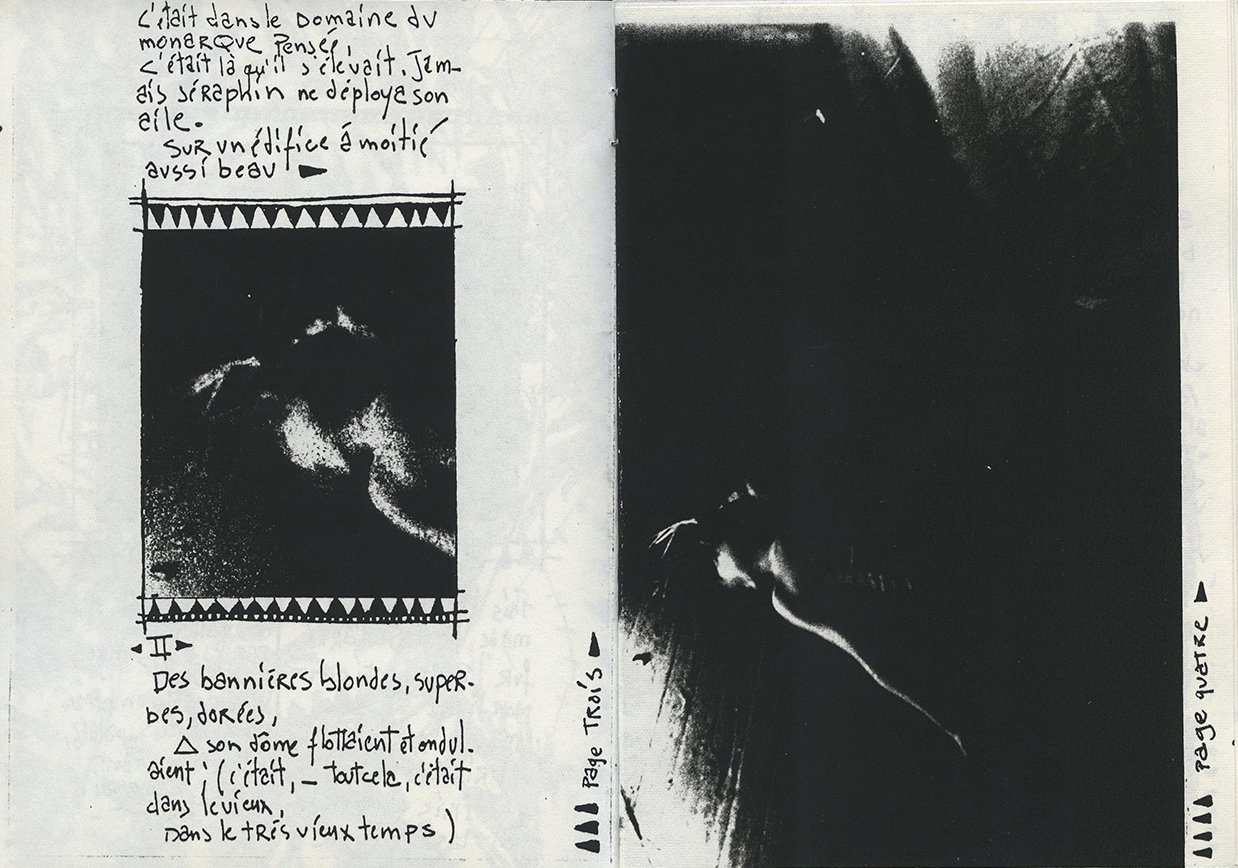 C'était dans le Domaine du
monarQue Pensée,
C'était là qu'il s'élevait. Jam-
ais séRaphin ne déploya son
aile.
SuR un édifice à moitié
aussi beau
II
Des banniéRes blondes, supeR-
bes, doRées,
A son dôme flottaient et ondul-
aient ; (c'était, – tout cela, c'était
dans le vieux,
Dans le tRés vieux temps)
Page TRoís
page quatRe